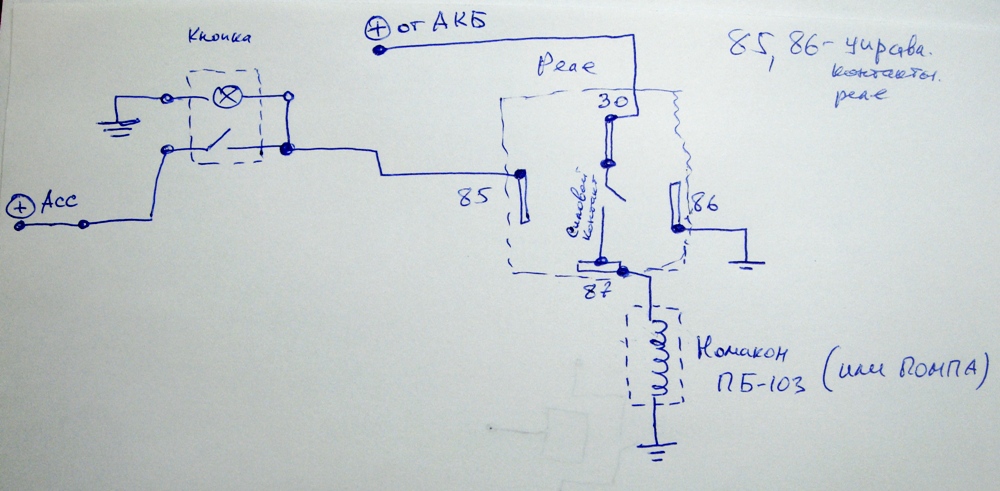 Кнопка
⊕ от АКБ
85, 86 - управл.
контакты.
реле
Реле
30
⊕ Acc
85
Силовой
контакт
86
87
Номакон
ПБ-103 (или ПОМПА)